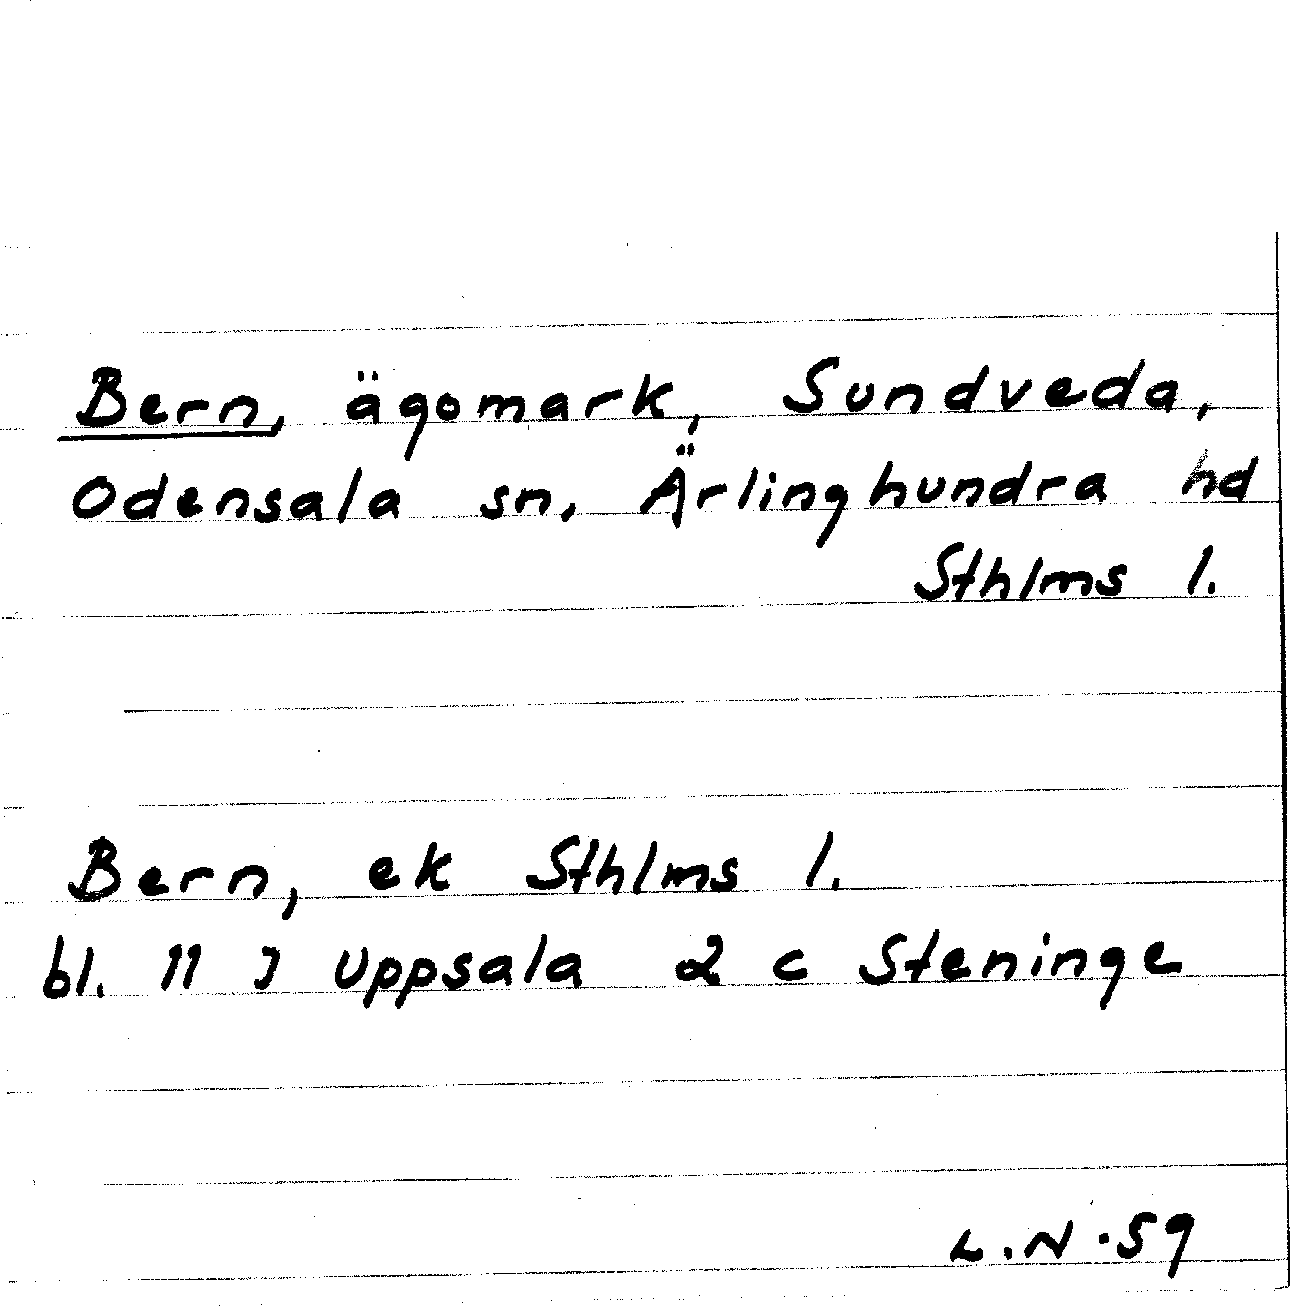 Bern, ägomark, Sundveda,
Odensala sn, Ärlinghundra hd
Sthlms l.
Bern, ek Sthlms l.
bl. 11 J Uppsala 2 c Steninge
L.N.59